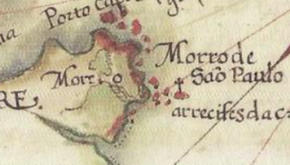 Porto
Morro de
São Paulo
Morro
RE.
arrecifes da c